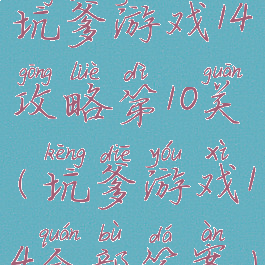 坑爹游戏14
gōng lüè dì guān
攻略第10关
kēng diē yóu xì
(坑爹游戏1
quán bù dá àn
4全部答案)